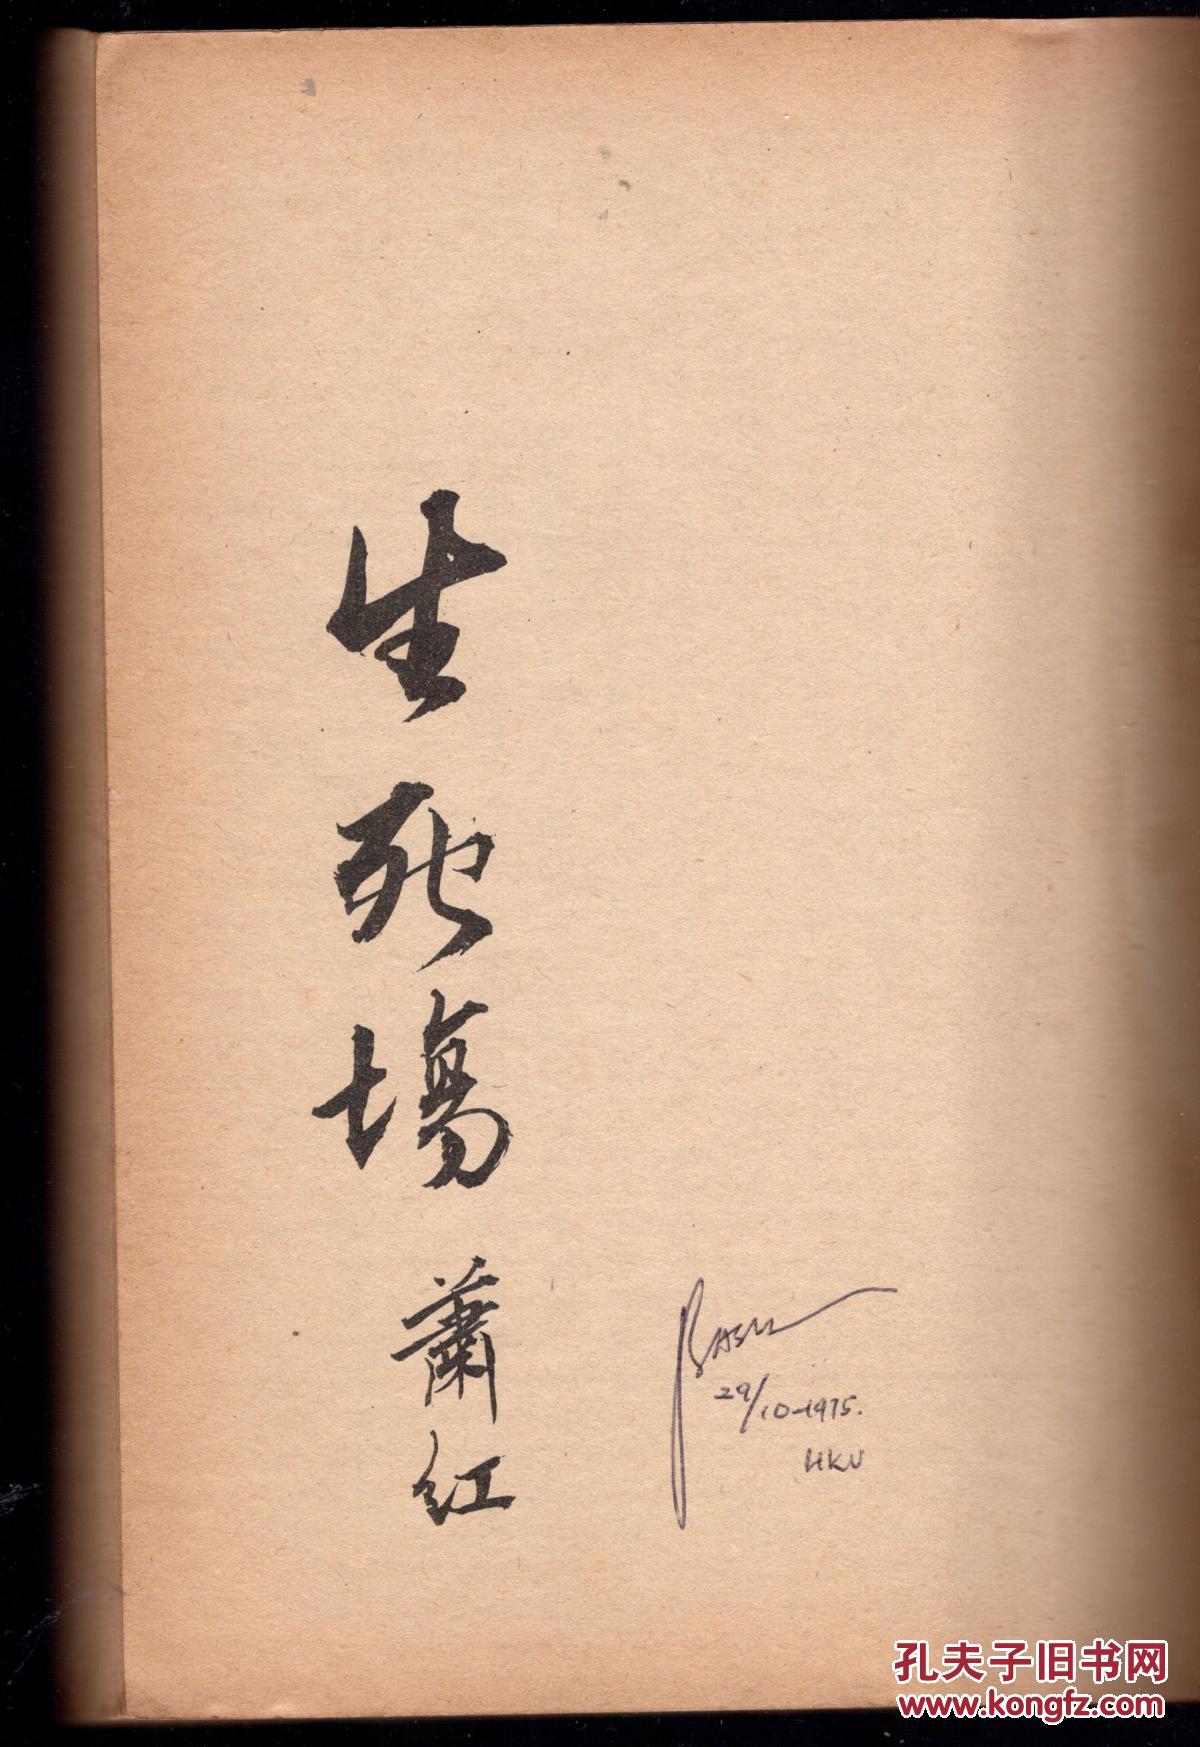 生死場
蕭红
BASIL
29/10-1975.
HKU
孔夫子旧书网
www.kongfz.com